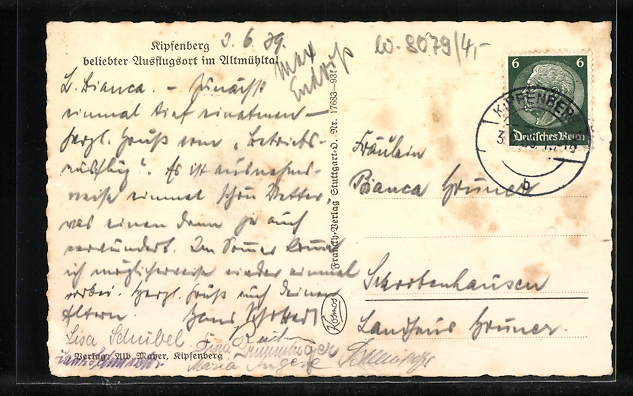 Kipfenberg
beliebter Ausflugsort im Altmühltal
3. 6. 39.
W-8079/4,-
Max
L. Bianca. – Zunächst
einmal tief einatmen –
herzl. Gruß vom „Betriebs-
ausflug“. Es ist ausnahms-
weise einmal schön Wetter
was einen dann ja auch
verwundert. Im Sommer komme
ich möglicherweise wieder einmal
vorbei. Herzl. Gruß auch deinen
Eltern. Hans
Lisa Schubel
Maria
Verlag Alb. Mayer, Kipfenberg
Franckh-Verlag Stuttgart-O. Nr. 17683-93
Kosmos
6 6
Deutsches Reich
KIPFENBERG
b
Fräulein
Bianca Gruner
Schrobenhausen
Landhaus Gruner.